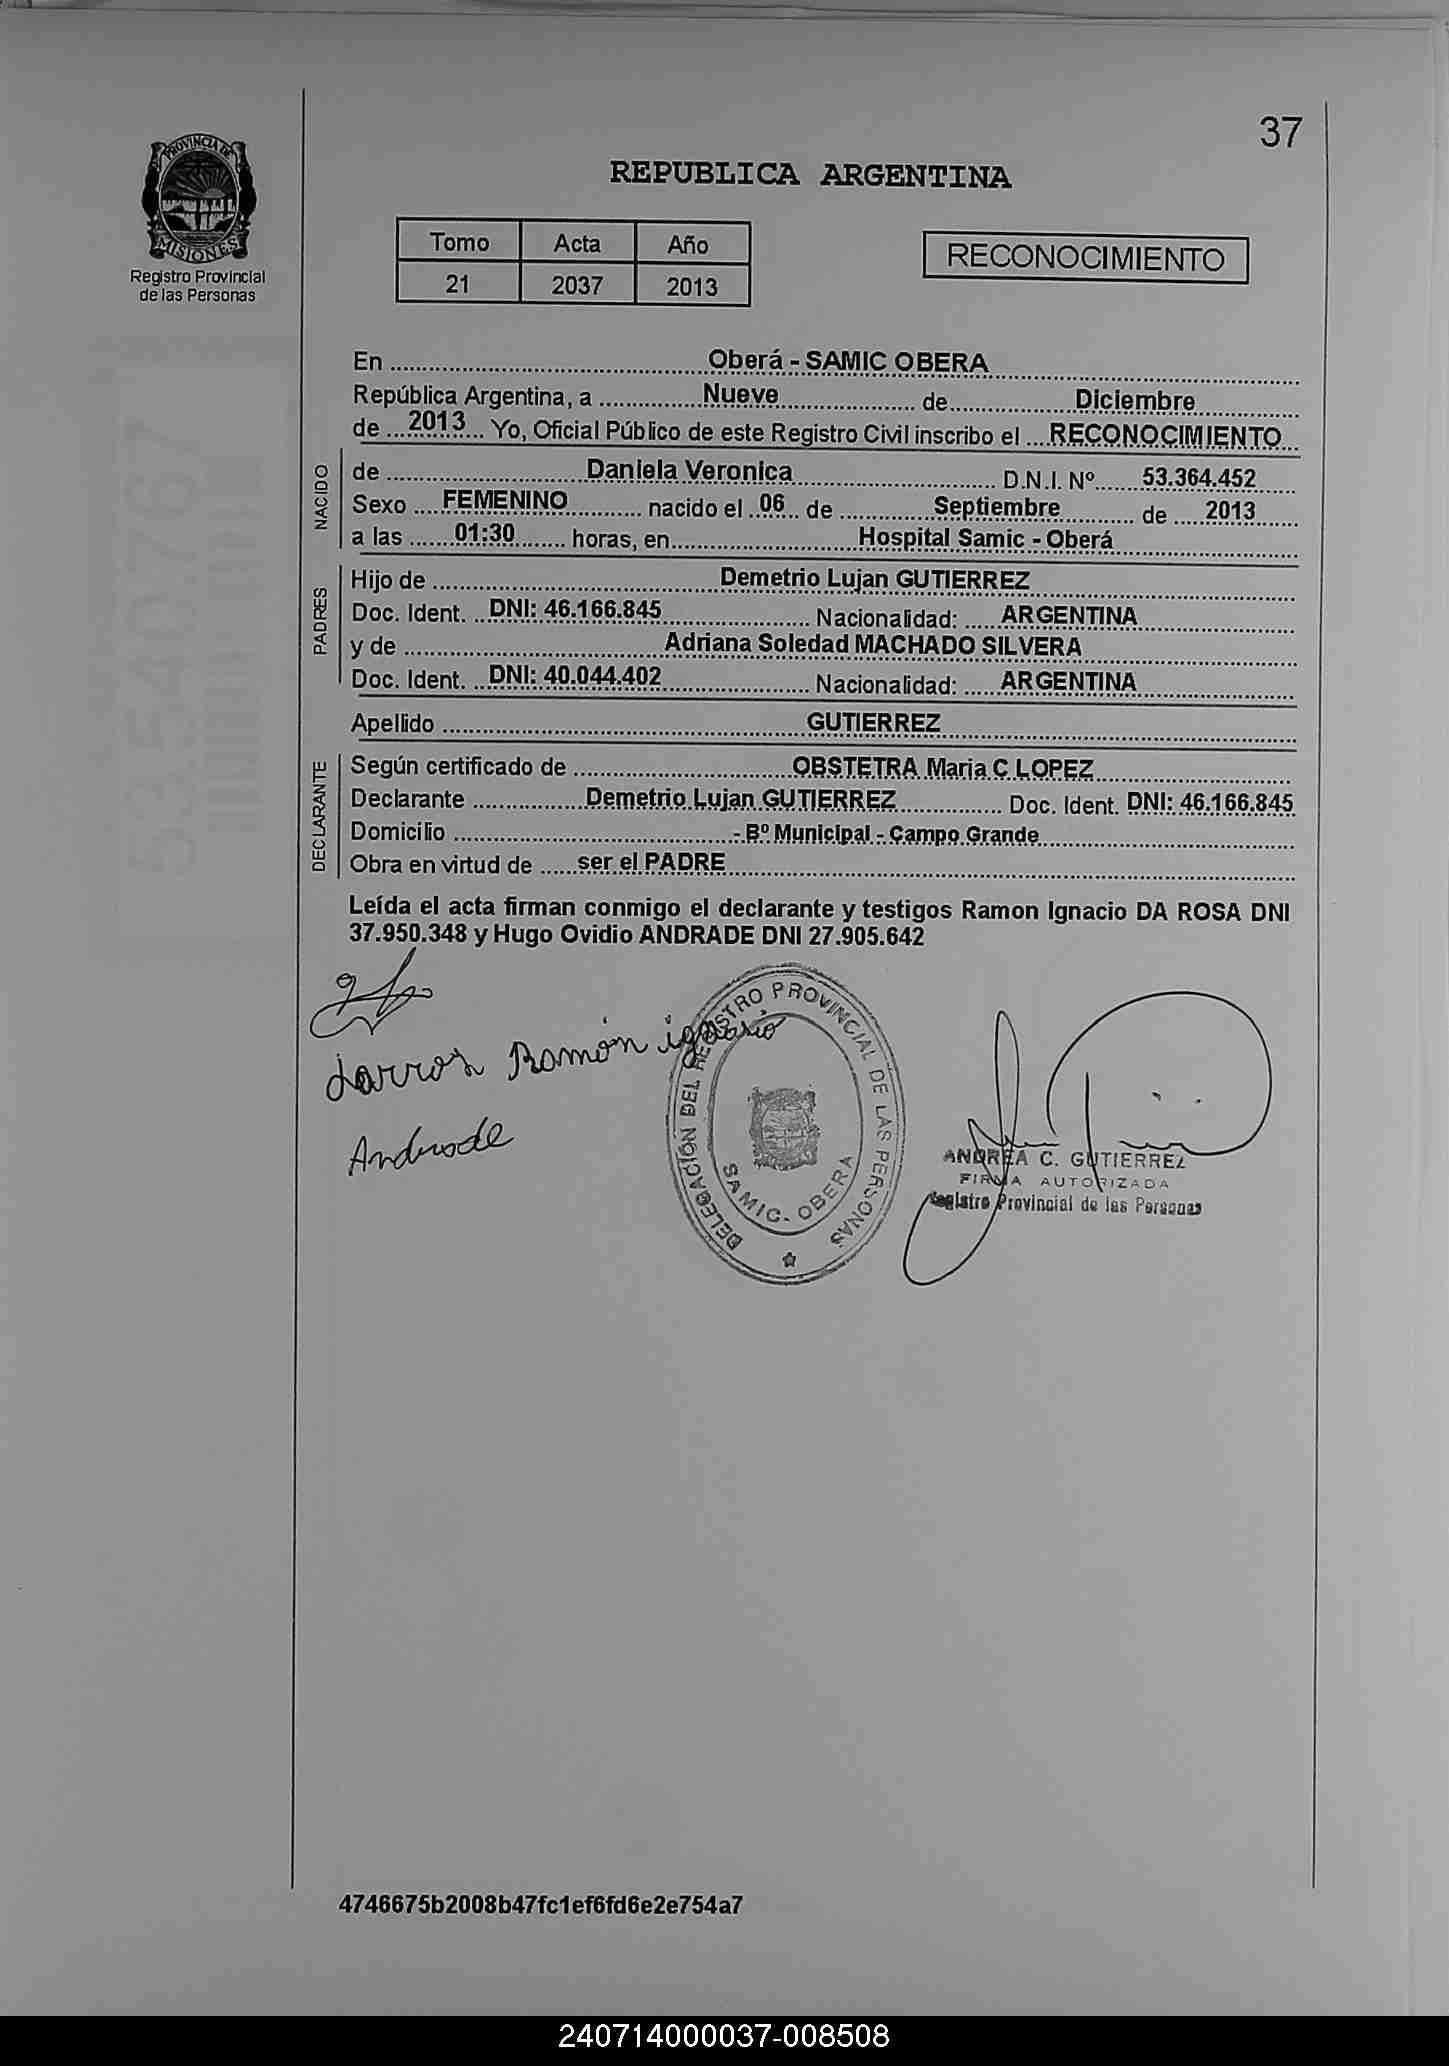 37
PROVINCIA DE
MISIONES
Registro Provincial
de las Personas
REPUBLICA ARGENTINA
Tomo Acta Año
21 2037 2013
RECONOCIMIENTO
En Oberá - SAMIC OBERA
República Argentina, a Nueve de Diciembre
de 2013 Yo, Oficial Público de este Registro Civil inscribo el RECONOCIMIENTO
NACIDO
de Daniela Veronica D.N.I. Nº 53.364.452
Sexo FEMENINO nacido el 06 de Septiembre de 2013
a las 01:30 horas, en Hospital Samic - Oberá
PADRES
Hijo de Demetrio Lujan GUTIERREZ
Doc. Ident. DNI: 46.166.845 Nacionalidad: ARGENTINA
y de Adriana Soledad MACHADO SILVERA
Doc. Ident. DNI: 40.044.402 Nacionalidad: ARGENTINA
Apellido GUTIERREZ
DECLARANTE
Según certificado de OBSTETRA Maria C LOPEZ
Declarante Demetrio Lujan GUTIERREZ Doc. Ident. DNI: 46.166.845
Domicilio - Bº Municipal - Campo Grande
Obra en virtud de ser el PADRE
Leída el acta firman conmigo el declarante y testigos Ramon Ignacio DA ROSA DNI
37.950.348 y Hugo Ovidio ANDRADE DNI 27.905.642
Ramón ignasio
Andrade
DELEGACIÓN DEL REGISTRO PROVINCIAL DE LAS PERSONAS
SAMIC - OBERA
ANDREA C. GUTIERREZ
FIRMA AUTORIZADA
Registro Provincial de las Personas
4746675b2008b47fc1ef6fd6e2e754a7
240714000037-008508